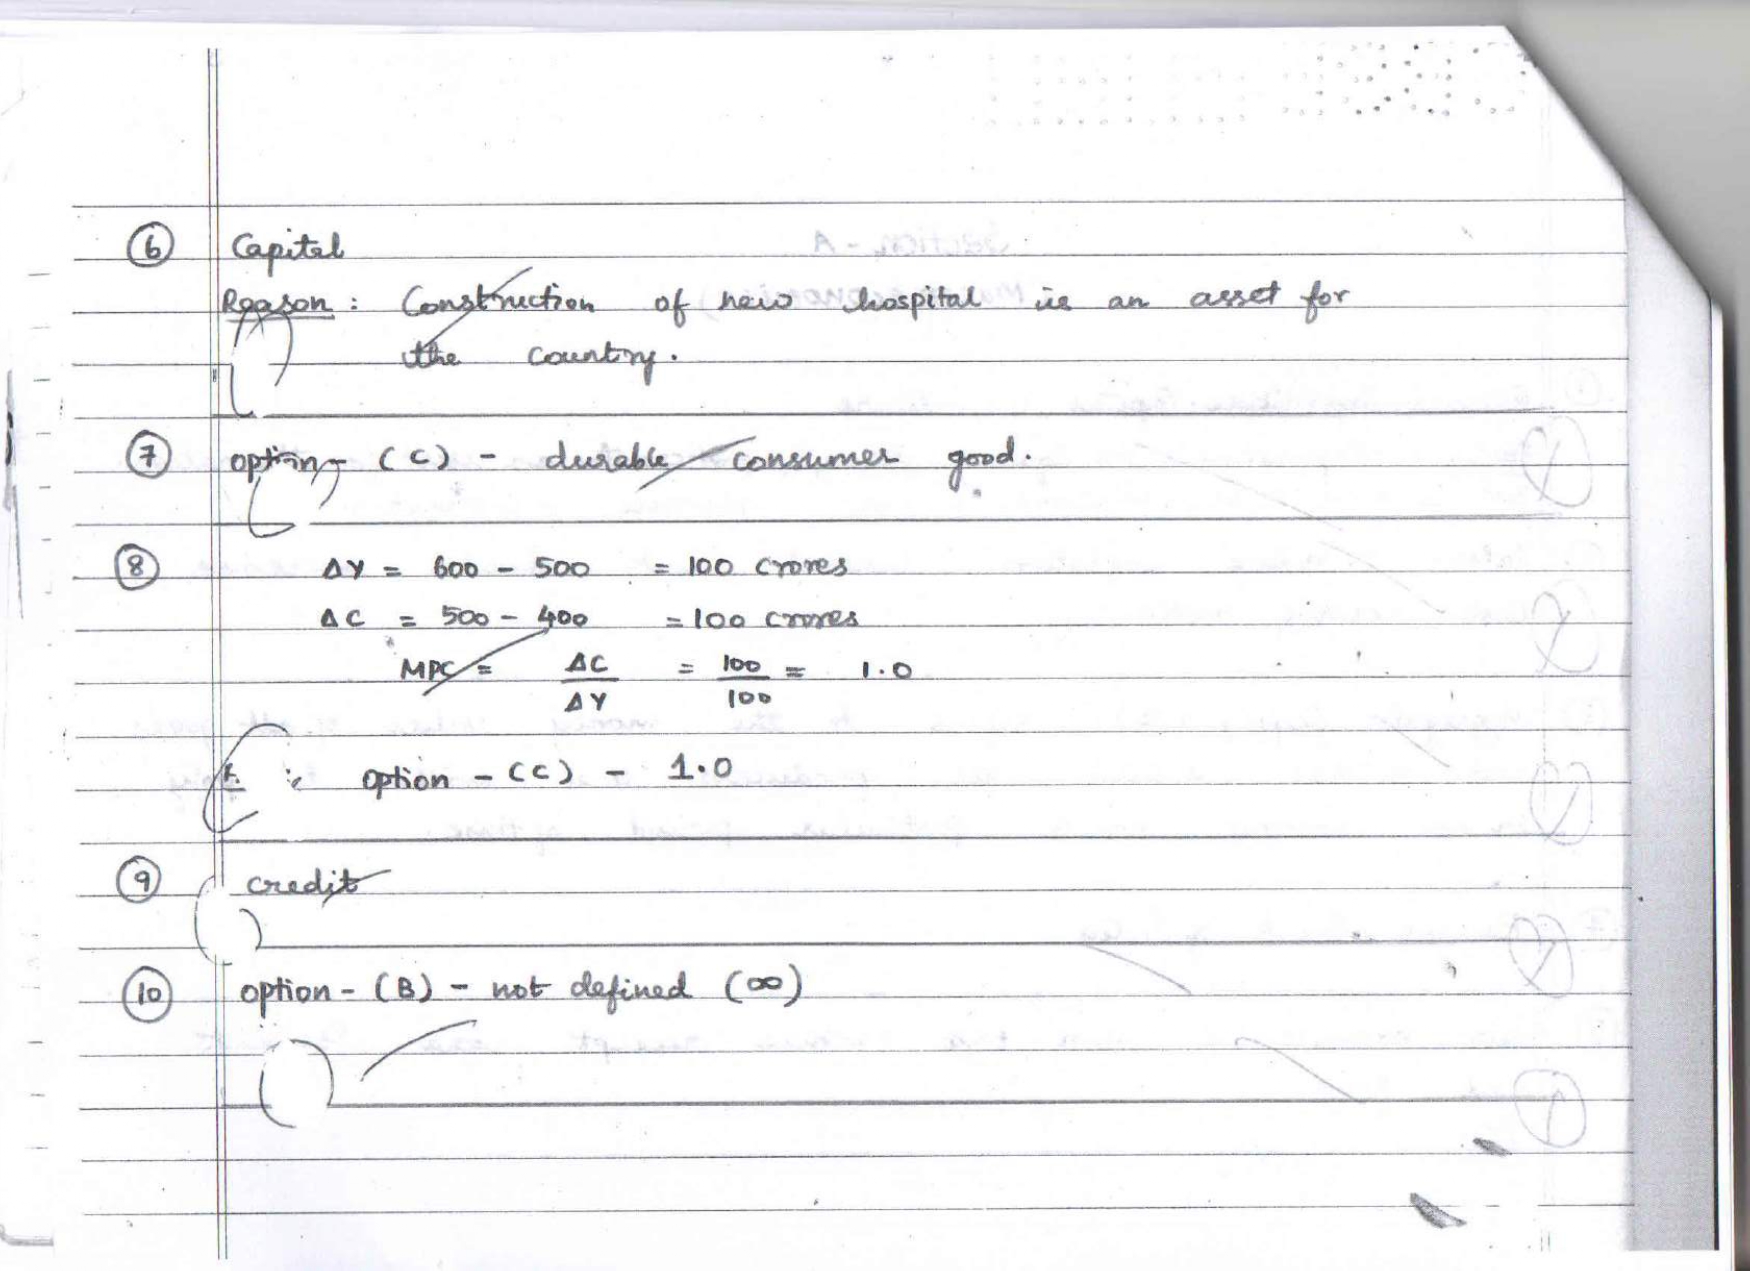 6 Capital
Reason : Construction of new hospital is an asset for
the country.
7 option - (C) - durable consumer good.
8 ΔY = 600 - 500 = 100 crores
ΔC = 500 - 400 = 100 crores
MPC = ΔC/ΔY = 100/100 = 1.0
∴ option - (C) - 1.0
9 credit
10 option - (B) - not defined (∞)